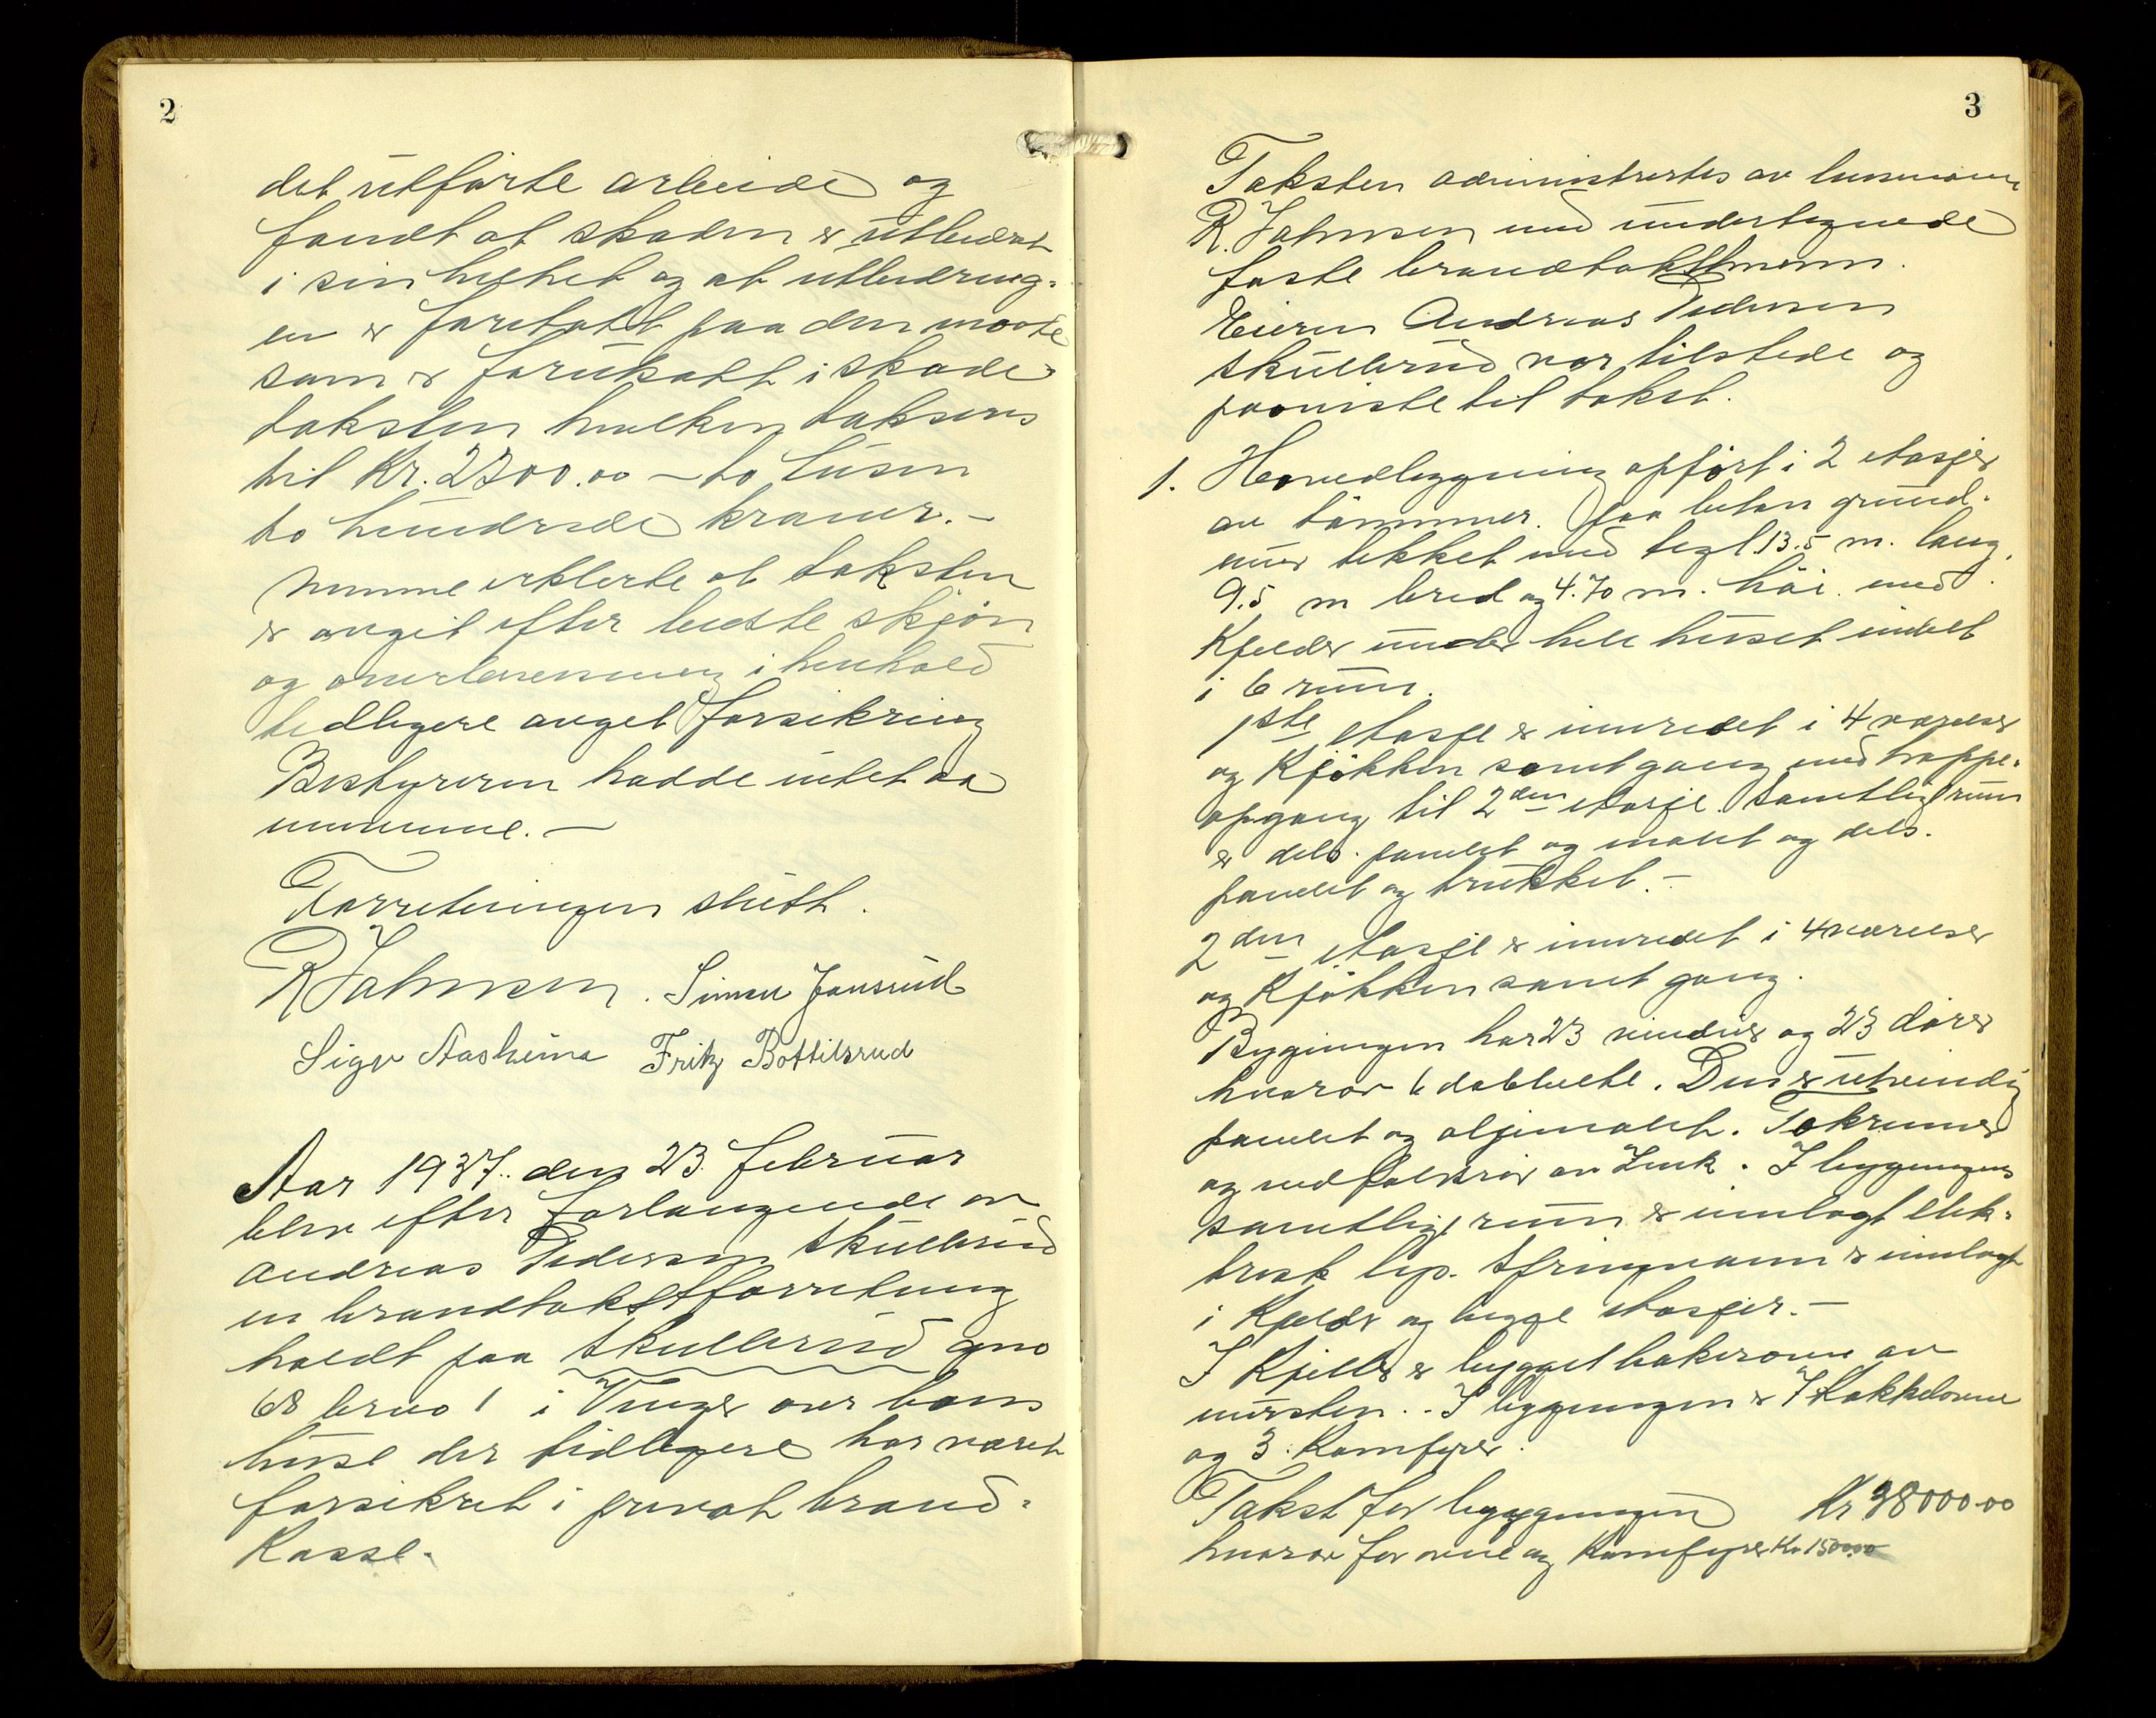 2
det utførte arbeide og
fandt at skaden er utbedret
i sin helhet og at utbedring-
en er foretatt paa den maate
som er forutsatt i skade
taksten hvilken taksers
til Kr. 2200.00 – to tusen
to hundrede kroner. –
erklerte at taksten
er avgit efter bedste skjøn
og overbevisning i henhold
tidligere avget forsikring
Bestyreren hadde intet aa
Forretningen slutt.
R Johnsen. Simen Jansrud
Sigv Aasheim Fritz Bottilsrud
Aar 1937. den 23. februar
blev efter forlangende av
Andreas Pedersen Skullerud
en brandtakstforretning
holdt paa Skullerud gno
68 bruno 1 i Vinger over hans
huse der tidligere har været
forsikret i privat brand-
kasse.
3
Taksten administrertes av lensmann
R. Johnsen med undertegnede
faste brandtakstmenn.
Eieren Andreas Pedersen
Skullerud var tilstede og
paaviste til takst.
1. Hovedbygning opført i 2 etasjer
av tømmer. Paa beton grund-
mur tekket med tegl 13.5 m. lang,
9.5 m bred og 4.70 m. høi. med
Kjelder under hele huset indelt
i 6 rum.
1ste etasje er innredet i 4 værelser
og Kjøkken samt gang med trappe-
opgang til 2den etasje. Samtlige rum
er dels. panelt og malet og dels.
panelt og trukket. –
2den etasje er innredet i 4 værelser
og Kjøkken samt gang.
Bygningen har 23 vinduer og 23 dører
hvorav 6 dobbelte. Den er utvendig
panelt og oljemalet. Takrenner
og nedfalsrør av Zink. I bygningens
samtlige rum er innlagt elek-
trisk lys. Springvann er innlagt
i Kjelder og begge etasjer. –
I Kjelder er bygget bakerovn av
mursten. - I bygningen er 7 Kakkelovne
og 3 Komfyrer.
Takst for bygningen Kr 38000.00
hvorav for ovne og Komfyrer Kr 1500.00